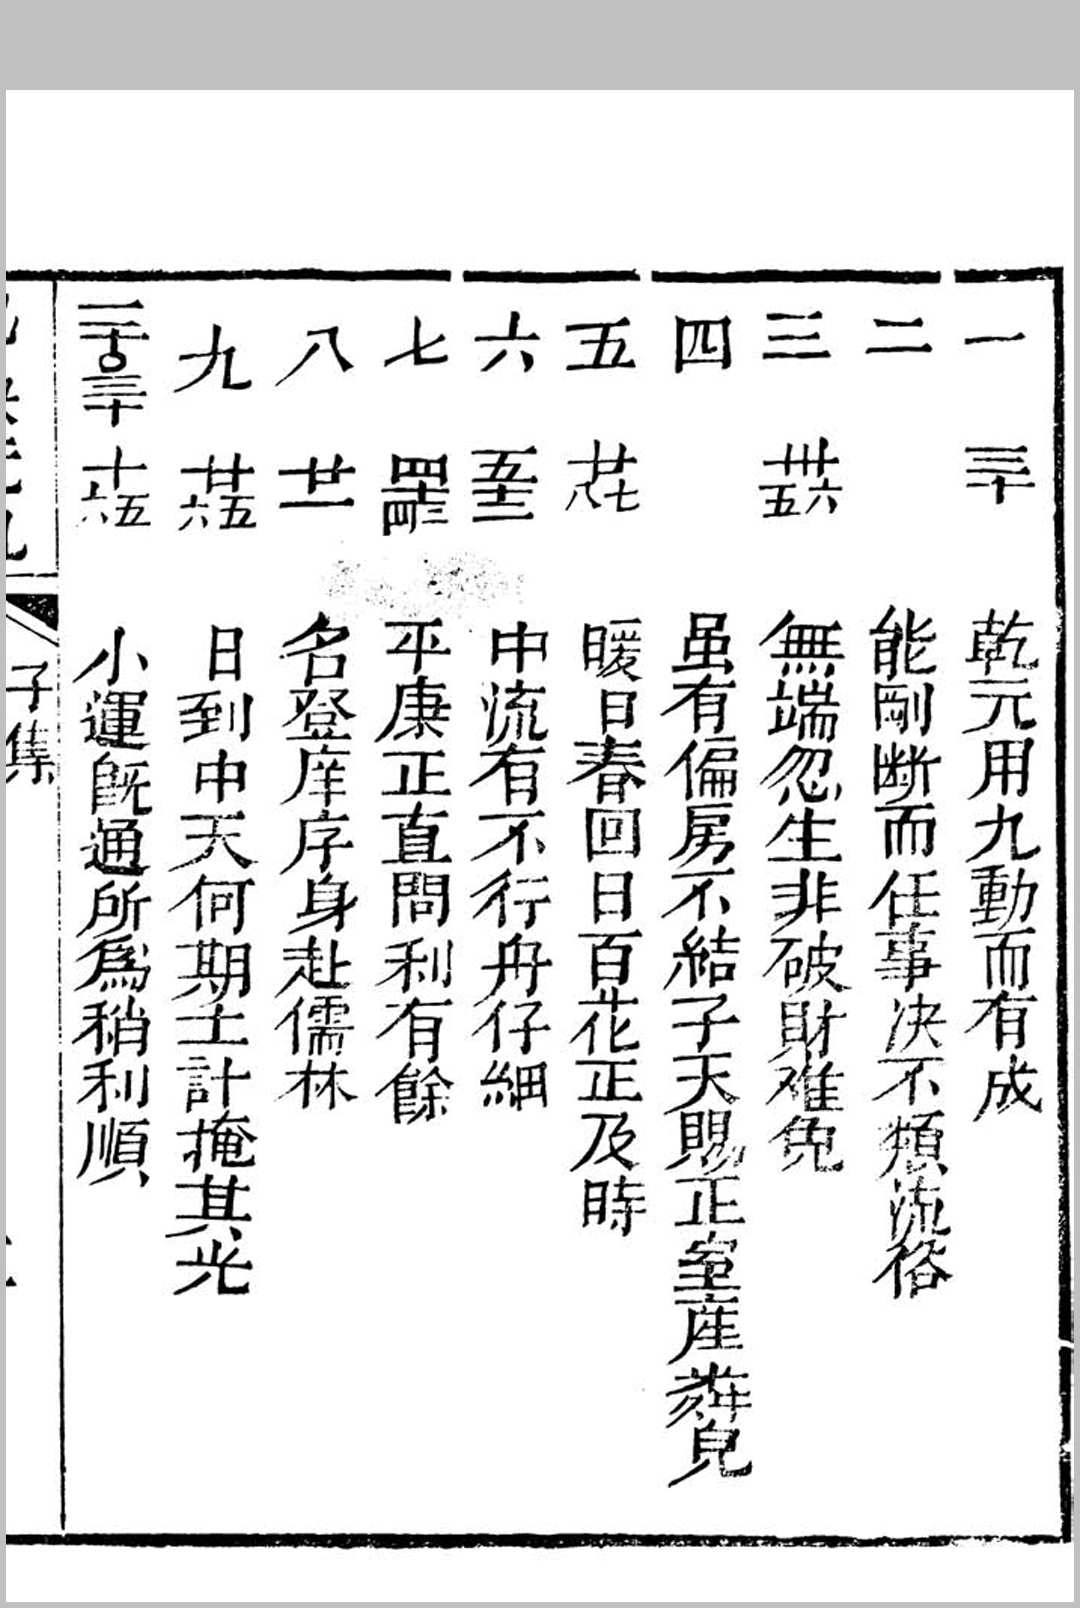 一 三十 乾元用九動而有成
二 能剛断而任事决不類流俗
三 卅六 五 無端忽生非破財难免
四 虽有偏房不結子天賜正室産
五 廿七 八 暖日春回日百花正及時
六 五十二 中流有不行舟仔細
七 四十三 四 平康正直問利有餘
八 廿一 名登庠序身赴儒林
九 廿五 六 日到中天何期土計掩其光
三十 十五 六 小運既通所爲稍利順
子集